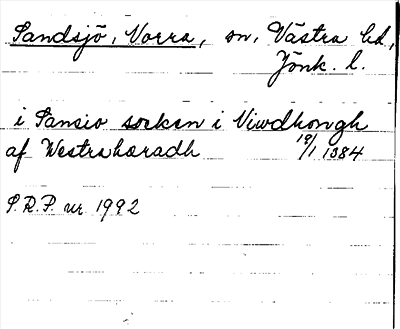 Sandsjö, Norra, sn, Västra hd,
Jönk. l.
i Sansio sockan i Viwdhongh
af Westrahæradh 19/1 1384
S.R.P. nr 1992